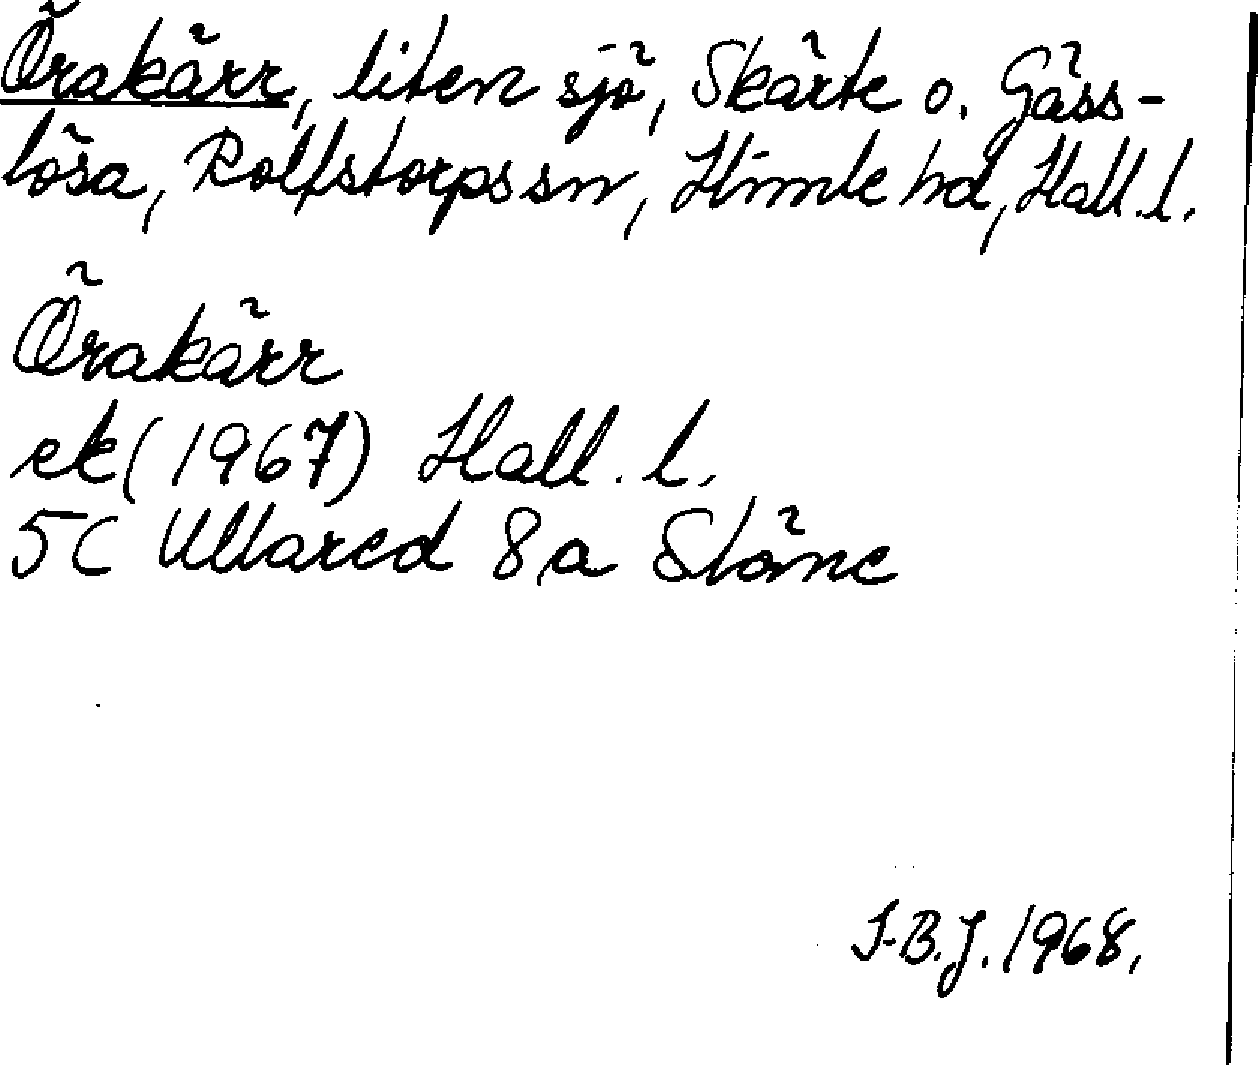 Örakärr, liten sjö, Skärte o. Gäss-
lösa, Rolfstorps sn, Himle hd, Hall. l.
Örakärr
ek (1967) Hall. l.
5C Ullared 8 a Stöne
I-B.J. 1968.